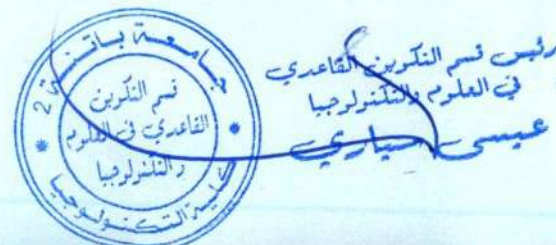 جامعة باتنة 2
قسم التكوين
القاعدي في العلوم
والتكنولوجيا
كلية التكنولوجيا
رئيس قسم التكوين القاعدي
في العلوم والتكنولوجيا
عيسى